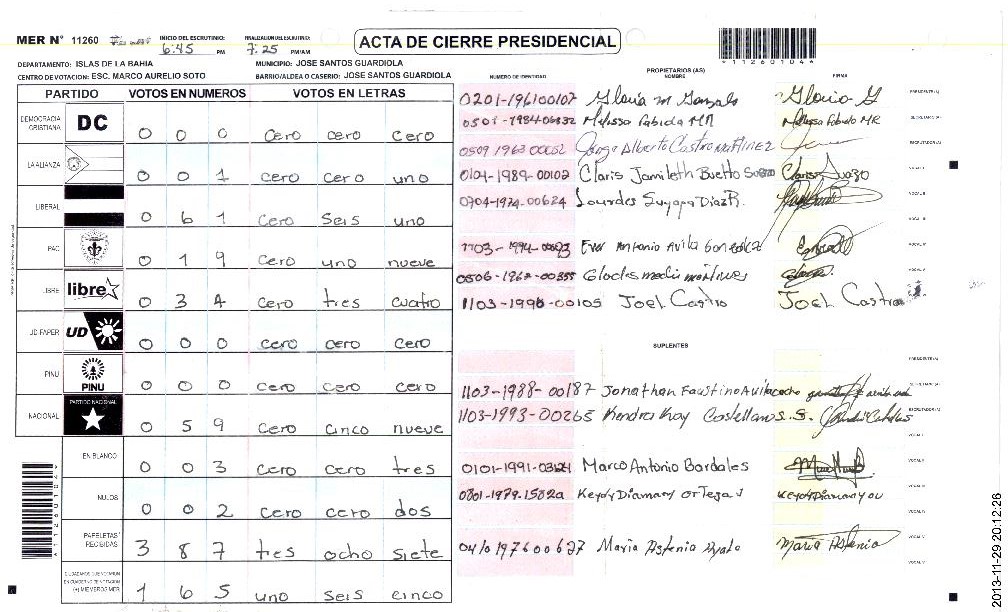 MER N° 11260 INICIO DEL ESCRUTINIO: 6:45 PM FINALIZACION DEL ESCRUTINIO: 7:25 PM/AM
ACTA DE CIERRE PRESIDENCIAL
*11260104*
DEPARTAMENTO: ISLAS DE LA BAHIA MUNICIPIO: JOSE SANTOS GUARDIOLA
CENTRO DE VOTACION: ESC. MARCO AURELIO SOTO BARRIO/ALDEA O CASERIO: JOSE SANTOS GUARDIOLA
PARTIDO VOTOS EN NUMEROS VOTOS EN LETRAS
DEMOCRACIA CRISTIANA DC 0 0 0 cero cero cero
LA ALIANZA 0 0 1 cero cero uno
LIBERAL 0 6 1 cero seis uno
PAC 0 1 9 cero uno nueve
LIBRE libre 0 3 4 cero tres cuatro
UD.FAPER UD 0 0 0 cero cero cero
PINU PINU 0 0 0 cero cero cero
NACIONAL PARTIDO NACIONAL 0 5 9 cero cinco nueve
EN BLANCO 0 0 3 cero cero tres
NULOS 0 0 2 cero cero dos
PAPELETAS RECIBIDAS 3 8 7 tres ocho siete
CIUDADANOS QUE VOTARON EN CUADERNO DE VOTACION (+) MIEMBROS MER 1 6 5 uno seis cinco
NUMERO DE IDENTIDAD PROPIETARIOS (AS) NOMBRE FIRMA
0201-196100107 Gloria M Gonzalo Gloria G PRESIDENTE(A)
0501-1984-06832 Melissa Fabiola MR Melissa Fabiola MR SECRETARIO(A)
0509 1963 00052 Jorge Alberto Castro Martinez ESCRUTADOR(A)
0101-1989-00102 Claris Jamileth Buetto Suazo Claris Suazo VOCAL I
0704-1974-00624 Lourdes Suyapa Diaz R. VOCAL II
VOCAL III
1103-1994-00093 Ever Antonio Avila Gonzalez VOCAL IV
0506-1962-00355 Glodes VOCAL V
1103-1990-00105 Joel Castro Joel Castro
SUPLENTES
PRESIDENTE(A)
1103-1988-00187 Jonathan Faustino Avila SECRETARIO(A)
1103-1993-00265 Kendra Kay Castellanos S. ESCRUTADOR(A)
VOCAL I
0101-1991-03121 Marco Antonio Bardales VOCAL II
0801-1979-1582 Keydy Diamary Ortega VOCAL III
VOCAL IV
0410 1976 00627 Maria Astenia Maria Astenia VOCAL V
2013-11-29 20:12:26